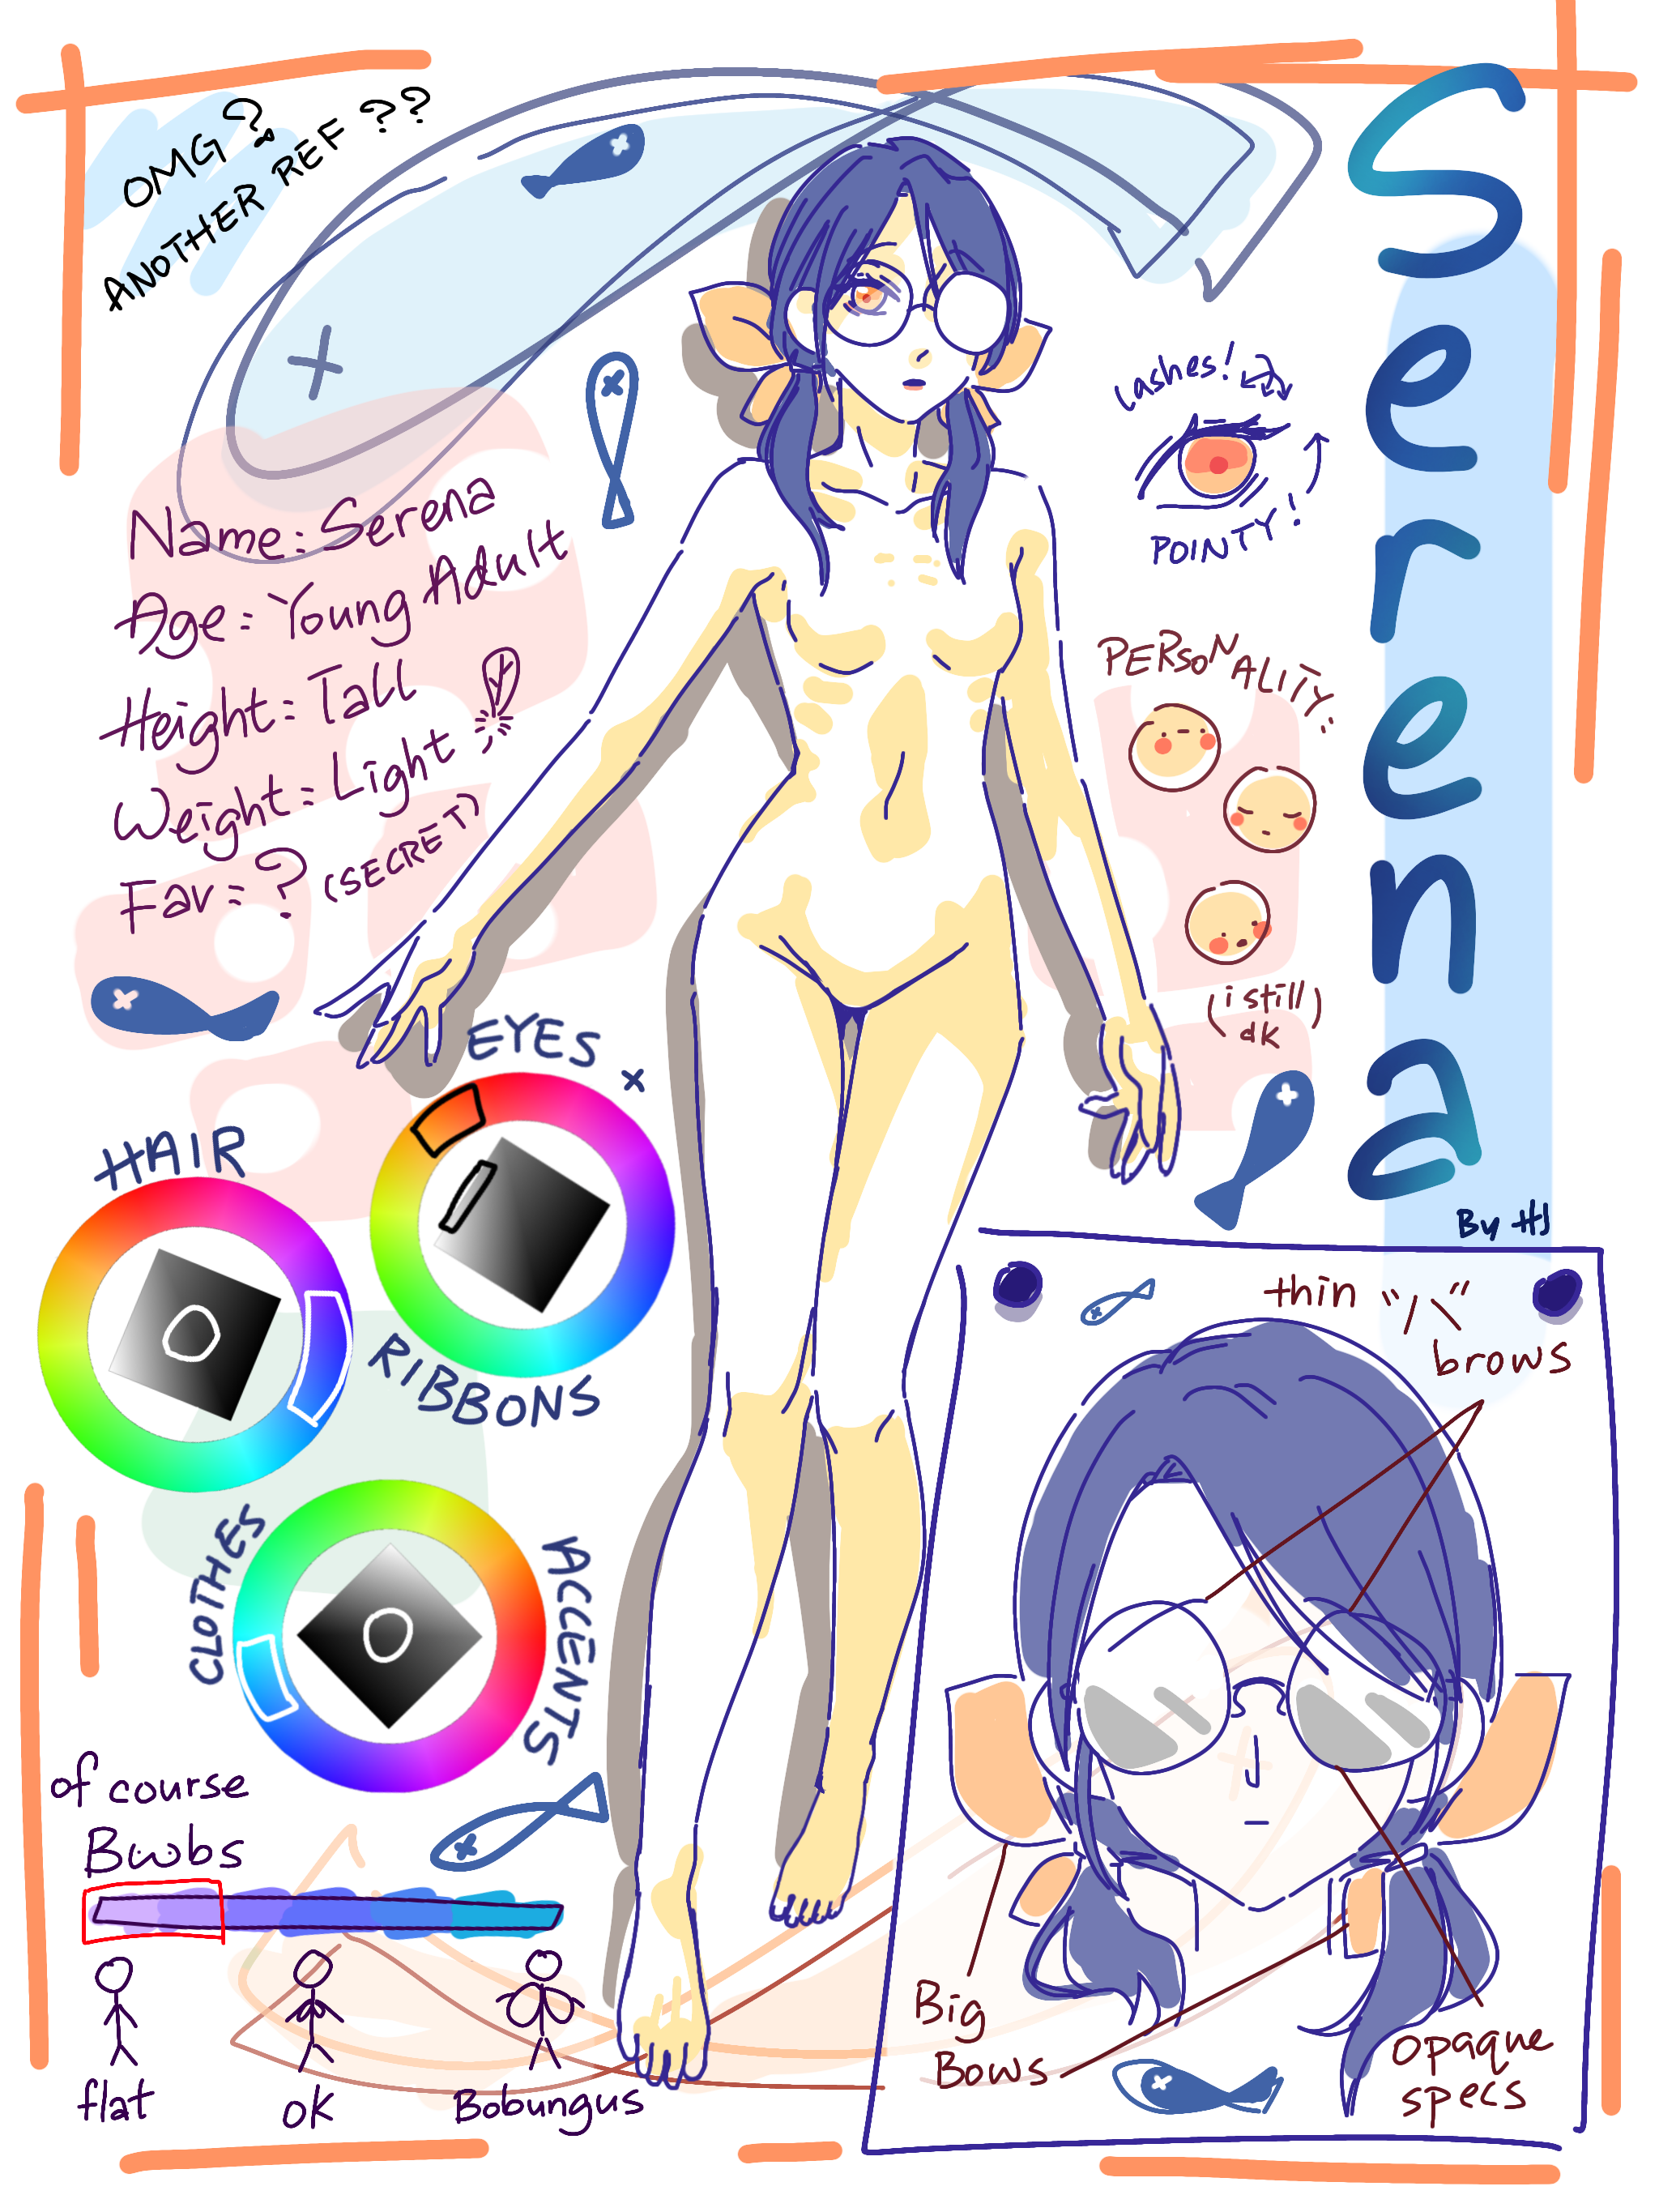 OMG?
ANOTHER REF??
Serena
Name: Serena
Age: Young Adult
Height: Tall
Weight: Light
Fav: ? (SECRET)
Lashes!
POINTY!
PERSONALITY:
(i still dk)
By HJ
EYES
RIBBONS
HAIR
CLOTHES
ACCENTS
of course
Bwbs
flat
OK
Bobungus
thin "\ /"
brows
Big
Bows
opaque
specs